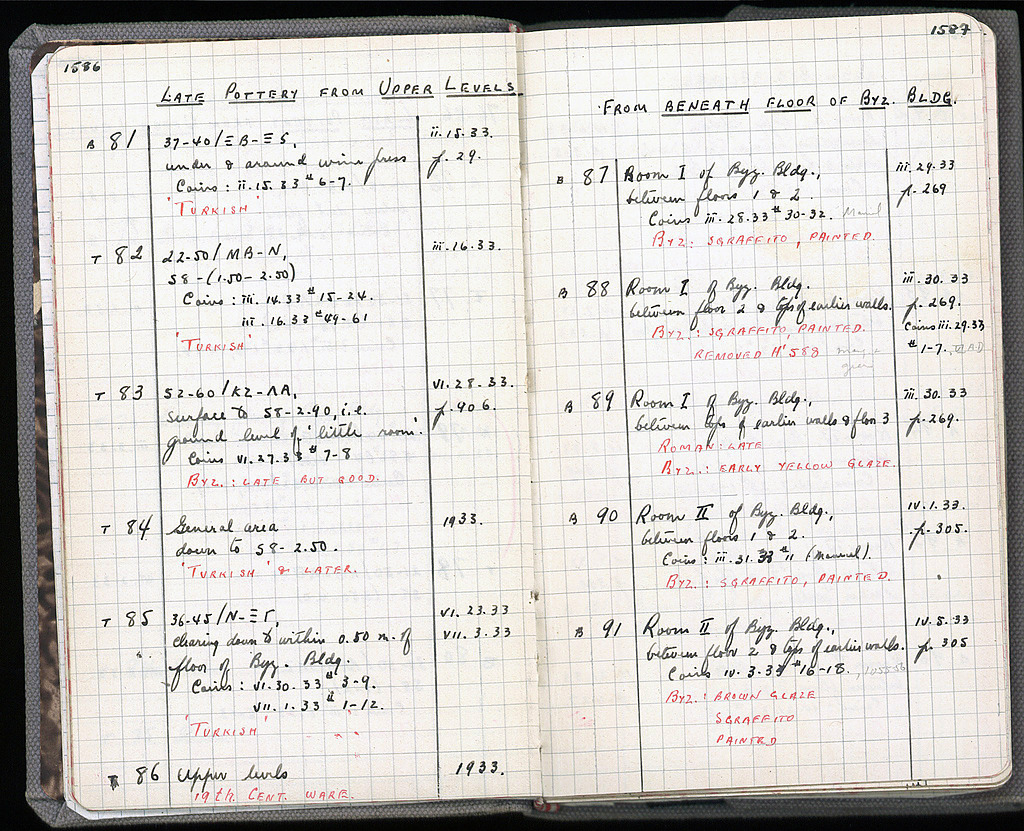 1586
LATE POTTERY FROM UPPER LEVELS
B 81 37-40/ΞB-ΞS, ii.15.33.
under & around wine press p.29.
Coins: ii.15.33 #6-7.
'TURKISH'
T 82 22-50/MB-N, iii.16.33.
58-(1.50-2.50)
Coins: iii.14.33 #15-24.
iii.16.33 #49-61
'TURKISH'
T 83 52-60/KZ-ΛA, VI.28-33.
surface to 58-2.90, i.e. p.906.
ground level of 'little room'.
Coins VI.27.33 #7-8
BYZ.: LATE BUT GOOD.
T 84 General area 1933.
down to 58-2.50.
'TURKISH' & LATER.
T 85 36-45/N-ΞΓ, VI.23.33
clearing down to within 0.50 m. of VII.3.33
floor of Byz. Bldg.
Coins: VI.30.33 #3-9.
VII.1.33 #1-12.
'TURKISH'
T 86 Upper levels 1933.
19th. CENT. WARE.
1587
FROM BENEATH FLOOR OF BYZ. BLDG.
B 87 Room I of Byz. Bldg., iii.29.33
between floors 1 & 2. p.269
Coins iii.28.33 #30-32.
BYZ: SGRAFFITO, PAINTED.
B 88 Room I of Byz. Bldg. iii.30.33
between floor 2 & tops of earlier walls. p.269.
BYZ.: SGRAFFITO, PAINTED. Coins iii.29.33
REMOVED H'588 #1-7,
B 89 Room I of Byz. Bldg., iii.30.33
between tops of earlier walls & floor 3 p.269.
ROMAN: LATE
BYZ.: EARLY YELLOW GLAZE.
B 90 Room II of Byz. Bldg., IV.1.33.
between floors 1 & 2. p.305.
Coins: iii.31.33 #11 (Manuel).
BYZ: SGRAFFITO, PAINTED.
B 91 Room II of Byz. Bldg., IV.5.33
between floor 2 & tops of earlier walls. p.305
Coins IV.3.33 #16-18.
BYZ.: BROWN GLAZE
SGRAFFITO
PAINTED